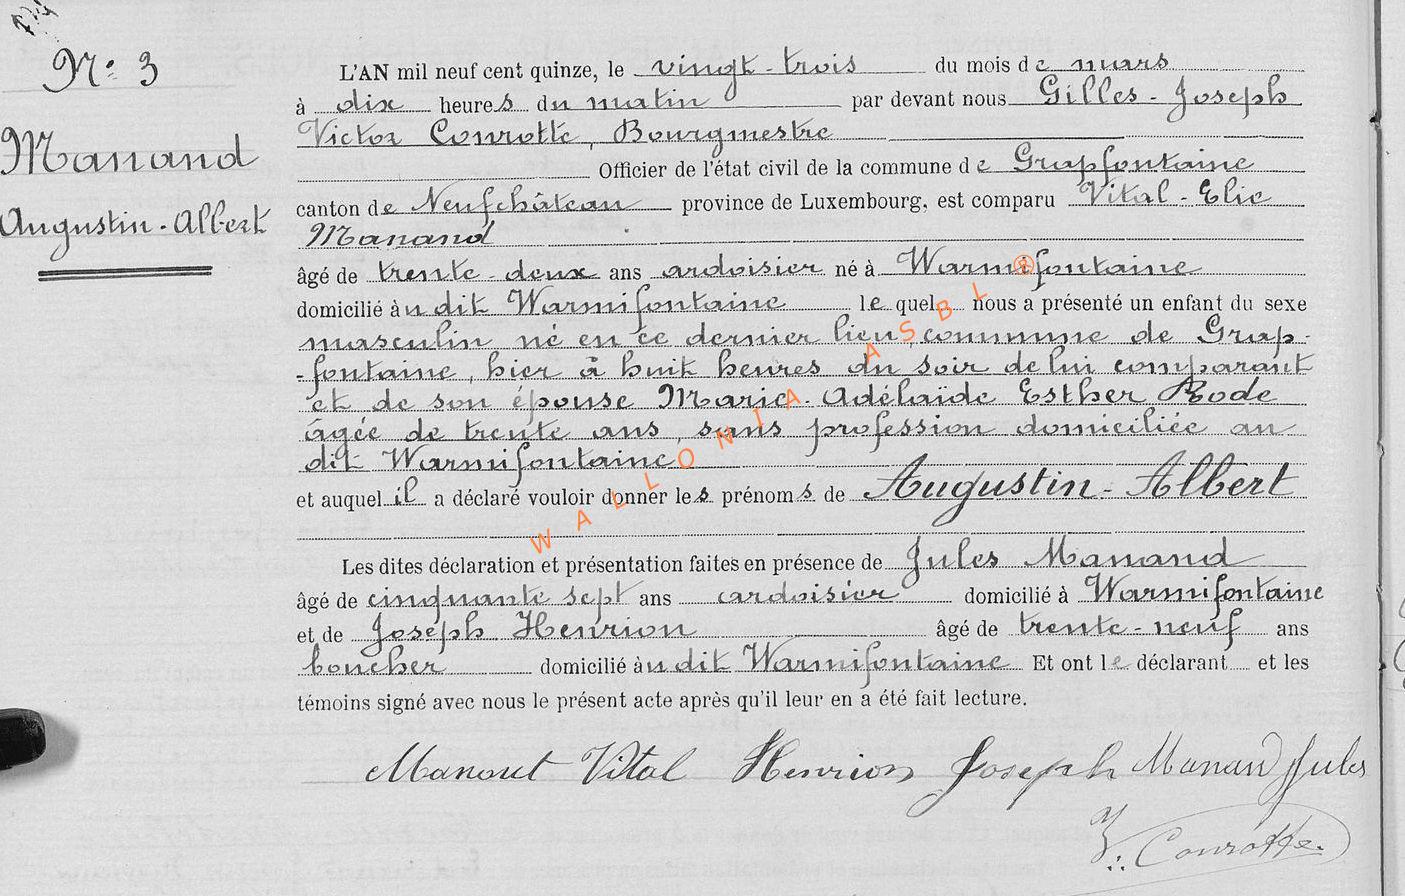 N° 3
Manand
Augustin-Albert
L'AN mil neuf cent quinze, le vingt-trois du mois de mars
à dix heures du matin par devant nous Gilles-Joseph
Victor Conrotte, Bourgmestre
Officier de l'état civil de la commune de Grapfontaine
canton de Neufchâteau province de Luxembourg, est comparu Vital-Elie
Manand
âgé de trente-deux ans ardoisier né à Warmifontaine
domicilié au dit Warmifontaine lequel nous a présenté un enfant du sexe
masculin né en ce dernier lieu, commune de Grap-
-fontaine, hier à huit heures du soir de lui comparant
et de son épouse Marie-Adélaïde Esther Bode
âgée de trente ans, sans profession domiciliée au
dit Warmifontaine
et auquel il a déclaré vouloir donner les prénoms de Augustin-Albert
Les dites déclaration et présentation faites en présence de Jules Manand
âgé de cinquante sept ans ardoisier domicilié à Warmifontaine
et de Joseph Henrion âgé de trente-neuf ans
boucher domicilié au dit Warmifontaine Et ont le déclarant et les
témoins signé avec nous le présent acte après qu'il leur en a été fait lecture.
Manant Vital Henrion Joseph Manand Jules
V. Conrotte.
WALLONIA ASBL ®